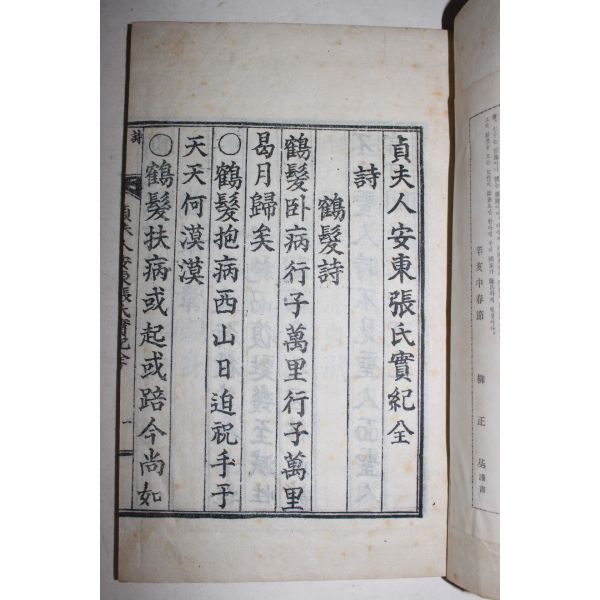 貞夫人安東張氏實紀全
詩
鶴髮詩
鶴髮卧病行子萬里行子萬里
曷月歸矣
〇鶴髮抱病西山日迫祝手于
天天何漠漠
〇鶴髮扶病或起或踣今尚如
詩
貞夫人安東張氏實紀全
一
辛亥中春節
柳正基謹書